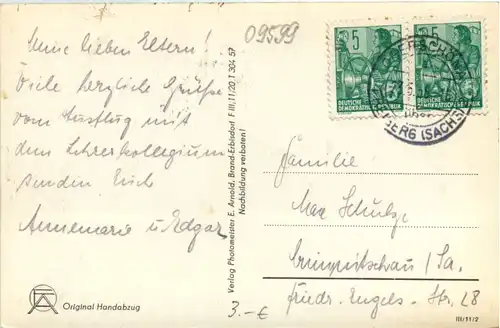 09599
Meine lieben Eltern!
Viele herzliche Grüße
vom Ausflug mit
dem Lehrerkollegium
senden Euch
Annemarie u Edgar
Original Handabzug
Verlag Photomeister E. Arnold, Brand-Erbisdorf F III/11/20 1 304 57
Nachbildung verboten!
3.-€
5
DEUTSCHE
DEMOKRATISCHE REPUBLIK
5
DEUTSCHE
DEMOKRATISCHE REPUBLIK
BERG (SACHS
Familie
Max Schulze
Crimmitschau / Sa.
Friedr.-Engels-Str. 28
III/11/2